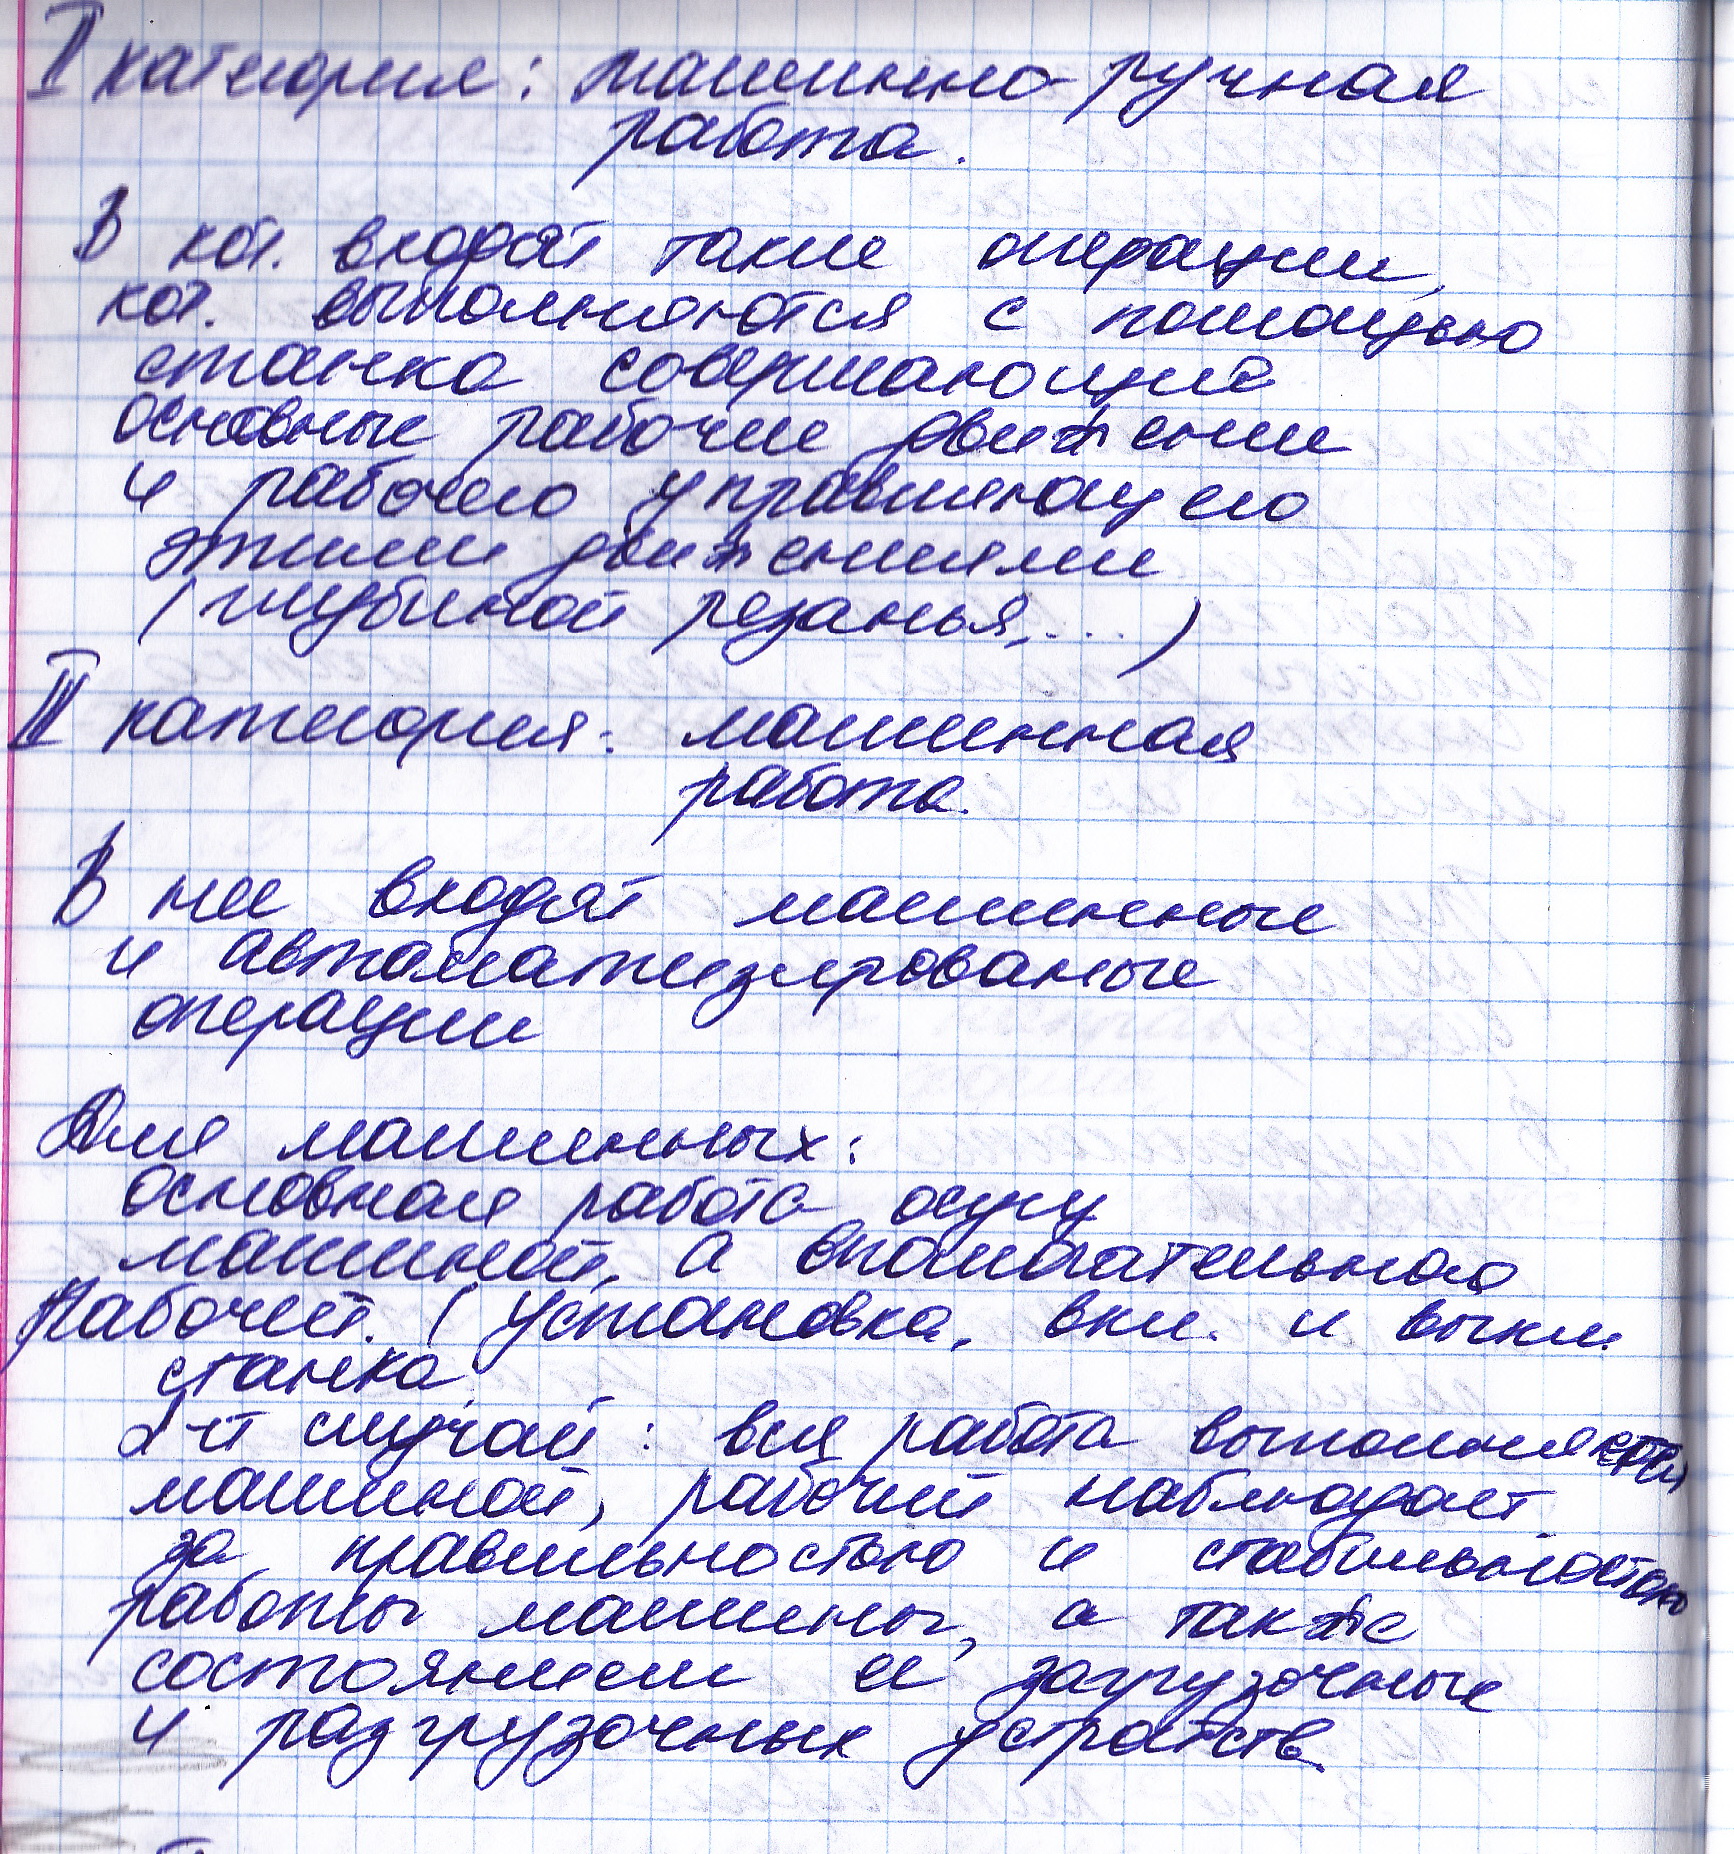 II категория: машинно-ручная
работа.
В кот. входят такие операции,
кот. выполняются с помощью
станка совершающие
основные рабочие движении
и рабочего управляющего
этими движениями
(глубиной резанья, ...)
III категория: машинная
работа.
В нее входят машинные
и автоматизированые
операции
Для машинных:
основная работа осущ
машиной, а вспомогательная
Рабочей. (Установка, вкл. и выкл.
станка
2-й случай: вся работа выполняется
машиной, рабочий наблюдает
за правильностью и стабильностью
работы машины, а также
состоянием её загрузочных
и разгрузочных устройств